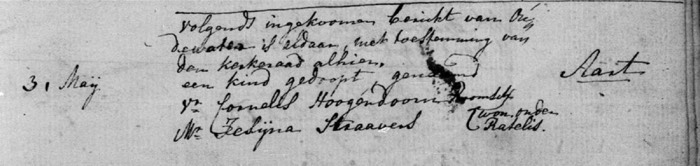 volgends ingekoomen bericht van Ou-
dewater is aldaar, met toestemming van
den kerkeraad alhier,
3, Maij een kind gedoopt, genaamd Aart
Vr Cornelis Hoogendoorn Roomsch
Mr Zesijna Straavers won. onder Ratelis.